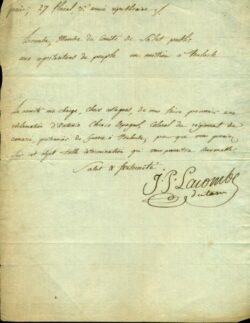 paris, 27 floreal 3e année républicaine
Lacombe, Membre du Comité de Salut public,
aux représentans du peuple en mission à Toulouse
Le comité me charge, chers collegues, de vous faire parvenir une
réclamation d'Antonio Espagnol, Colonel du régiment de
prisonnier de guerre à Toulouse, pour que vous preniez
sur cet objet telle détermination que vous paroîtra convenable
Salut & fraternité
J. P. Lacombe
du tarn